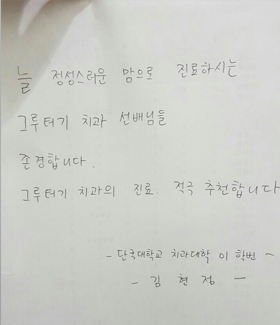 늘 정성스러운 맘으로 진료하시는
그루터기 치과 선배님들
존경합니다.
그루터기 치과의 진료. 적극 추천합니다
- 단국대학교 치과대학 이 학번 -
- 김 현 정 -